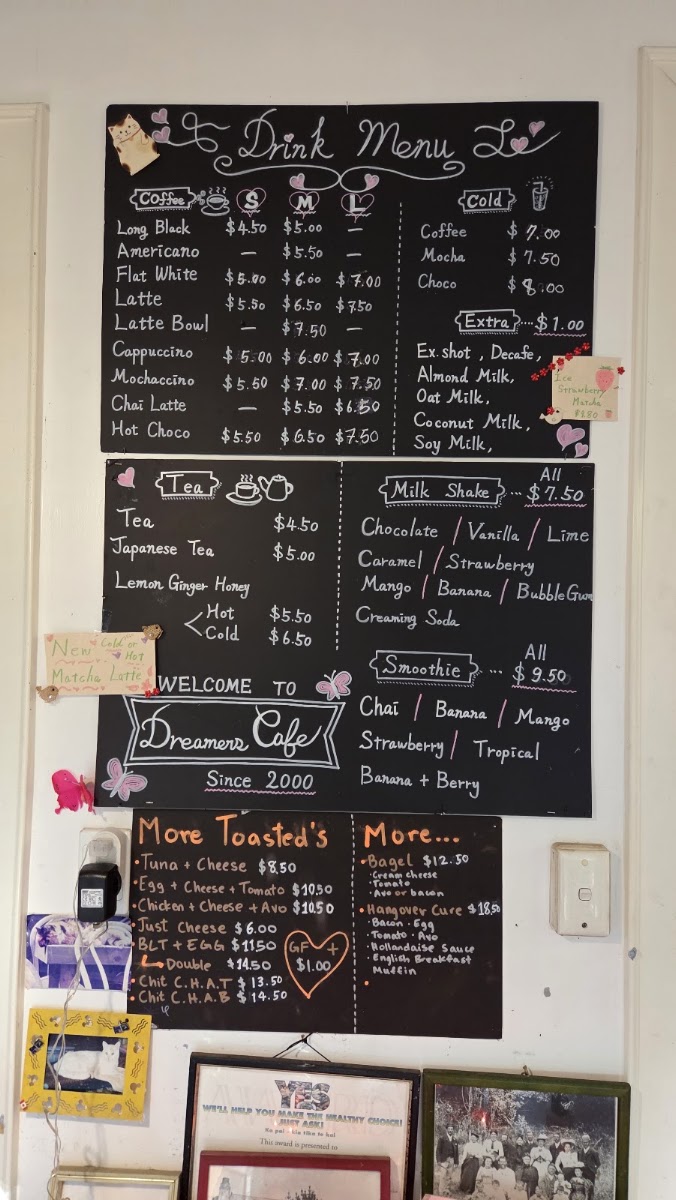 Drink Menu
Coffee S M L
Long Black $4.50 $5.00 —
Americano — $5.50 —
Flat White $5.00 $6.00 $7.00
Latte $5.50 $6.50 $7.50
Latte Bowl — $7.50 —
Cappuccino $5.00 $6.00 $7.00
Mochaccino $5.50 $7.00 $7.50
Chai Latte — $5.50 $6.50
Hot Choco $5.50 $6.50 $7.50
Cold
Coffee $7.00
Mocha $7.50
Choco $8.00
Extra ... $1.00
Ex.shot, Decafe,
Almond Milk,
Oat Milk,
Coconut Milk,
Soy Milk,
Ice
Strawberry
Matcha
Tea
Tea $4.50
Japanese Tea $5.00
Lemon Ginger Honey
Hot $5.50
Cold $6.50
New Cold or
Hot
Matcha Latte
WELCOME TO
Dreamers Cafe
Since 2000
All
Milk Shake ... $7.50
Chocolate / Vanilla / Lime
Caramel / Strawberry
Mango / Banana / BubbleGum
Creaming Soda
All
Smoothie ... $9.50
Chai / Banana / Mango
Strawberry / Tropical
Banana + Berry
More Toasted's
•Tuna + Cheese $8.50
•Egg + Cheese + Tomato $10.50
•Chicken + Cheese + Avo $10.50
•Just Cheese $6.00
•BLT + EGG $11.50
Double $14.50
•Chit C.H.A.T $13.50
•Chit C.H.A.B $14.50
GF +
$1.00
More...
•Bagel $12.50
•Cream cheese
•Tomato
•Avo or bacon
•Hangover Cure $18.50
•Bacon •Egg
•Tomato •Avo
•Hollandaise Sauce
•English Breakfast
Muffin
YES
WE'LL HELP YOU MAKE THE HEALTHY CHOICE!
JUST ASK!
This award is presented to